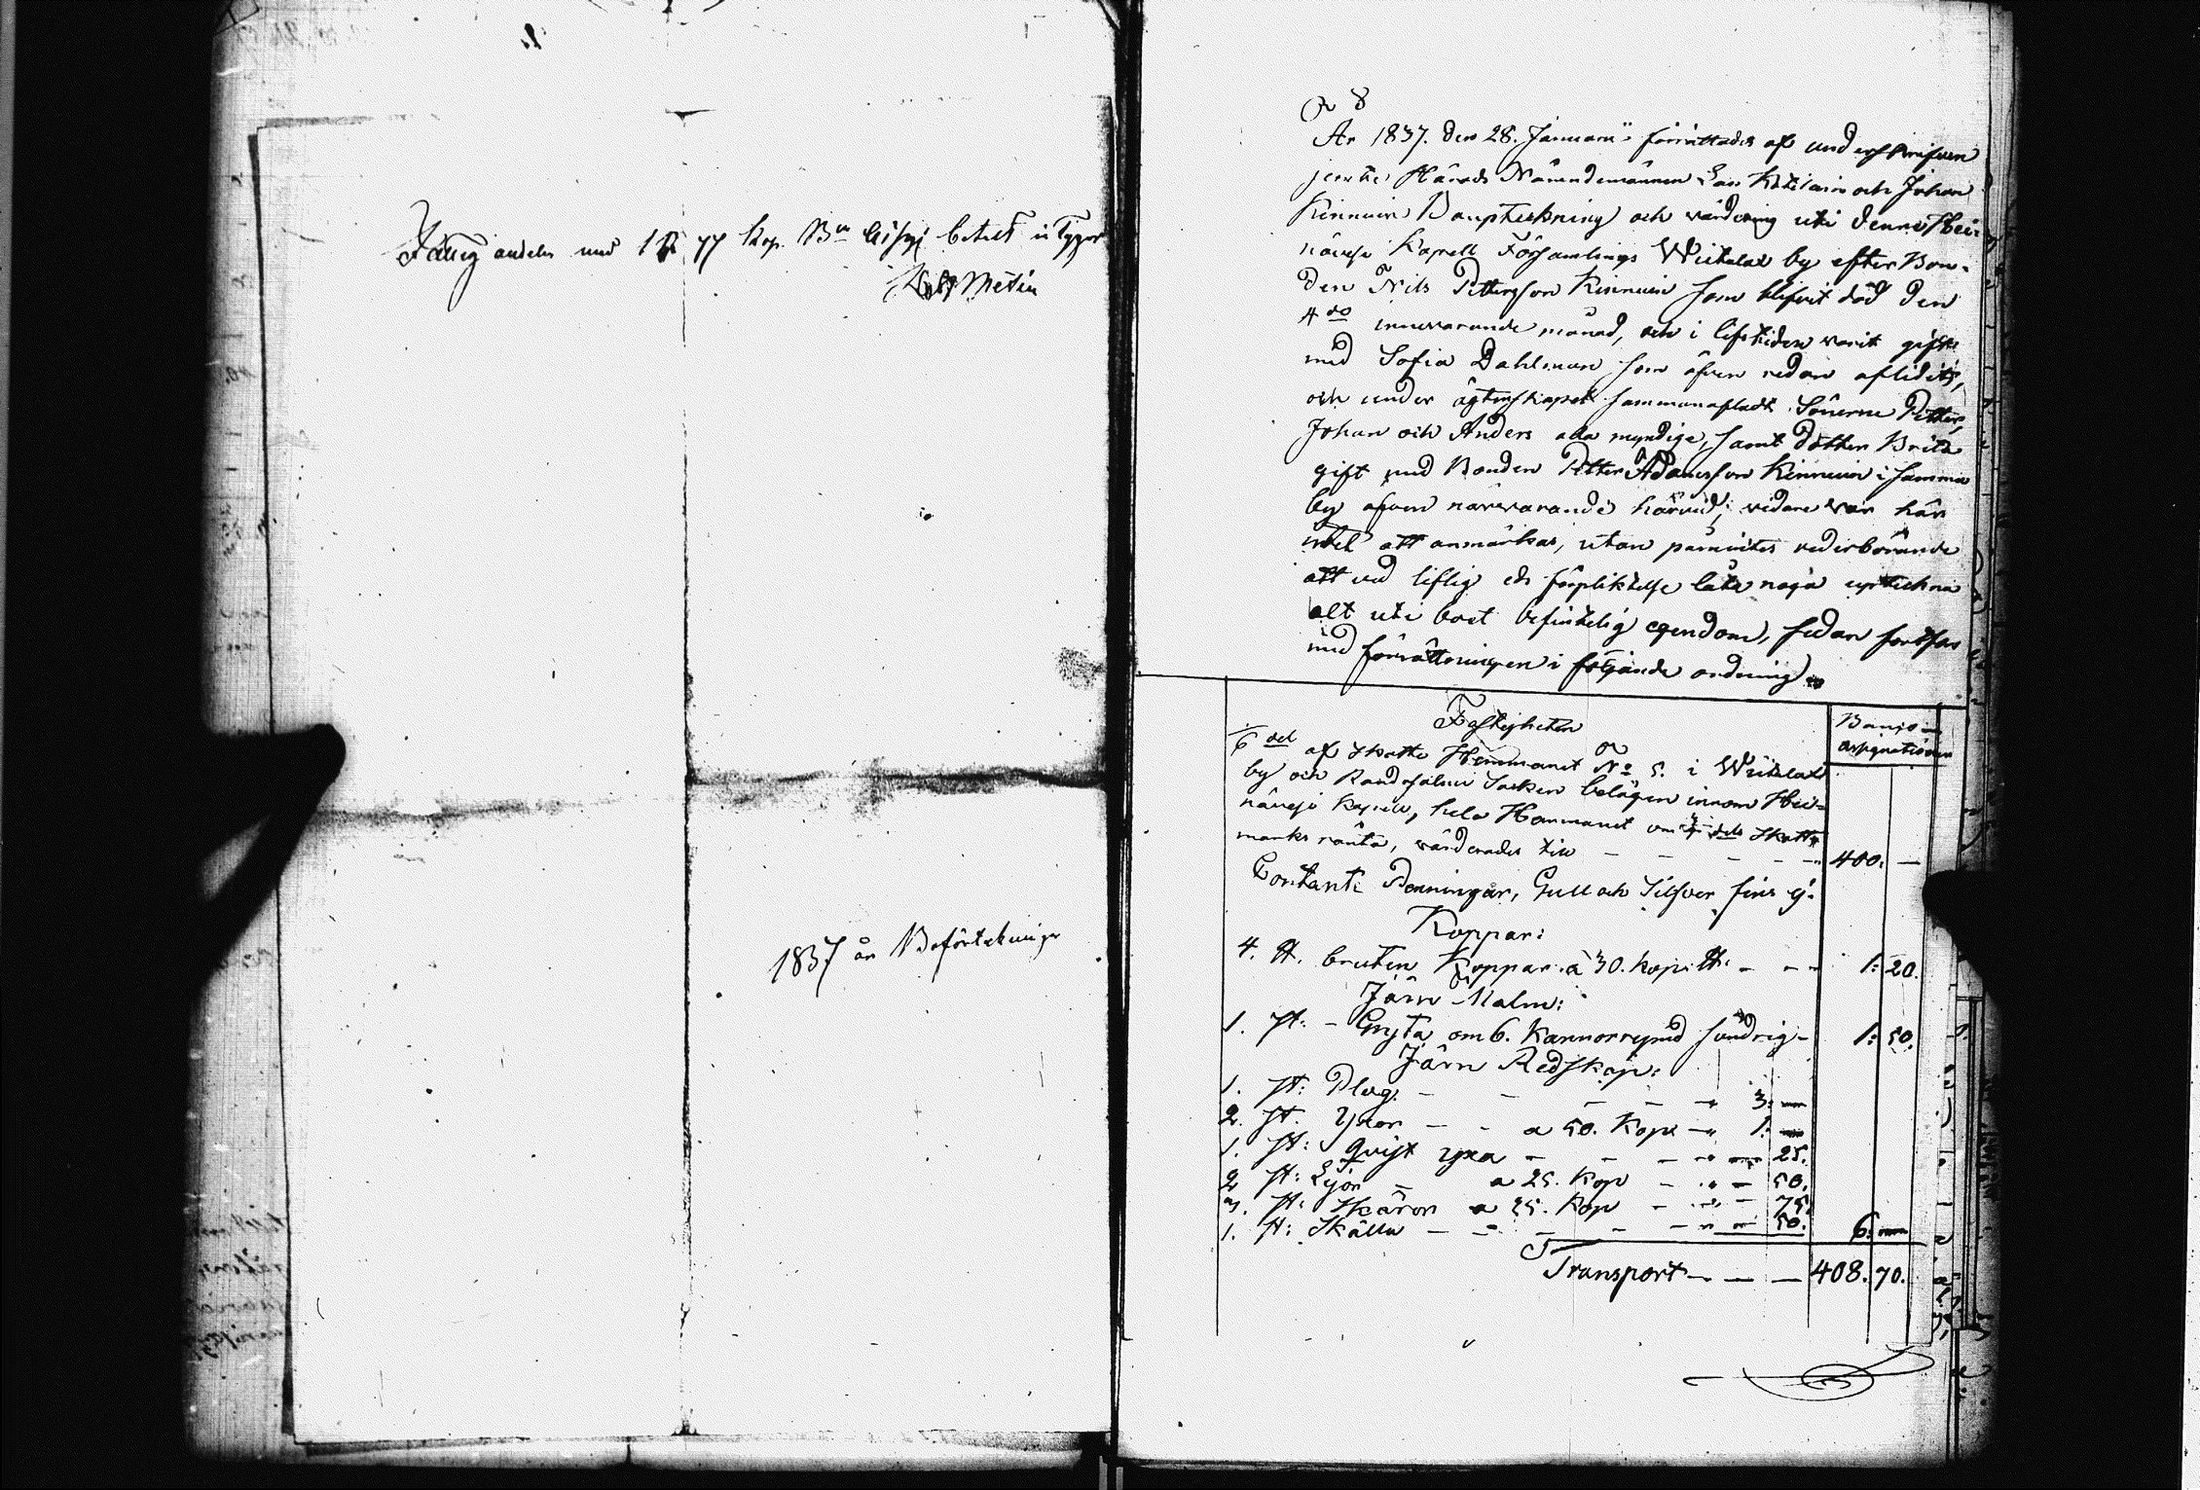 Fattig andelen med 1 R 77 Kop. Bco Assign betalt
Metin
1837 års Boförtekningar
No 8
År 1837. den 28. Januarii förrättades af underskrifven
jemte Härads Nämndemännen Lars och Johan
Kinnuin Boupteckning och värdering uti denne Hei-
näwesi Kapell Församlings Wiitalax by efter Bon-
den Nils Pettersson Kinnuin som blifvit död den
4de innevarande månad, och i lifstiden varit gift
med Sofia Dahlman som äfven redan aflidit,
och under ägtenskapet sammanafladt Sönerne Petter,
Johan och Anders alla myndige, samt dotter Brita
gift med Bonden Petter Adamsson Kinnuin i samma
by äfven närvarande härvid; vidare var här
intet att anmärkas, utan påmintes vederbörande
att vid liflig eds förpliktelse låta noga uptekna
alt uti boet befintelig egendom, sedan fortfors
med förrättningen i följande ordning.
Fastigheten
Banco
Assignationer
1/6 del af skatte Hemmanet No 5. i Wiitalax
by och Randasalmi Socken belägen innom Hei-
näwesi Kapell, hela Hemmanet om dels Skatt
marks ränta, värderades till — — — 400: —
Contanta Penningar, Gull och Silfver fins ej.
Koppar:
4. ℔. bruten Koppar à 30. kop: ℔. — — 1: 20.
Järn Malm:
1. st: — Gryta om 6. Kannor rymd söndrig — 1: 50.
Järn Redskap:
1. st: Plog. — — — — 3: —
2. st. Yxor — — a 50. Kop — 1: —
1. st: qvist yxa — — — — 25.
2 st: Ljor — a 25. Kop — — 50.
3. st: Skäror a 25. Kop — — 75.
1. st: Skälla — — — — — 50. 6: —
Transport — — — 408. 70.